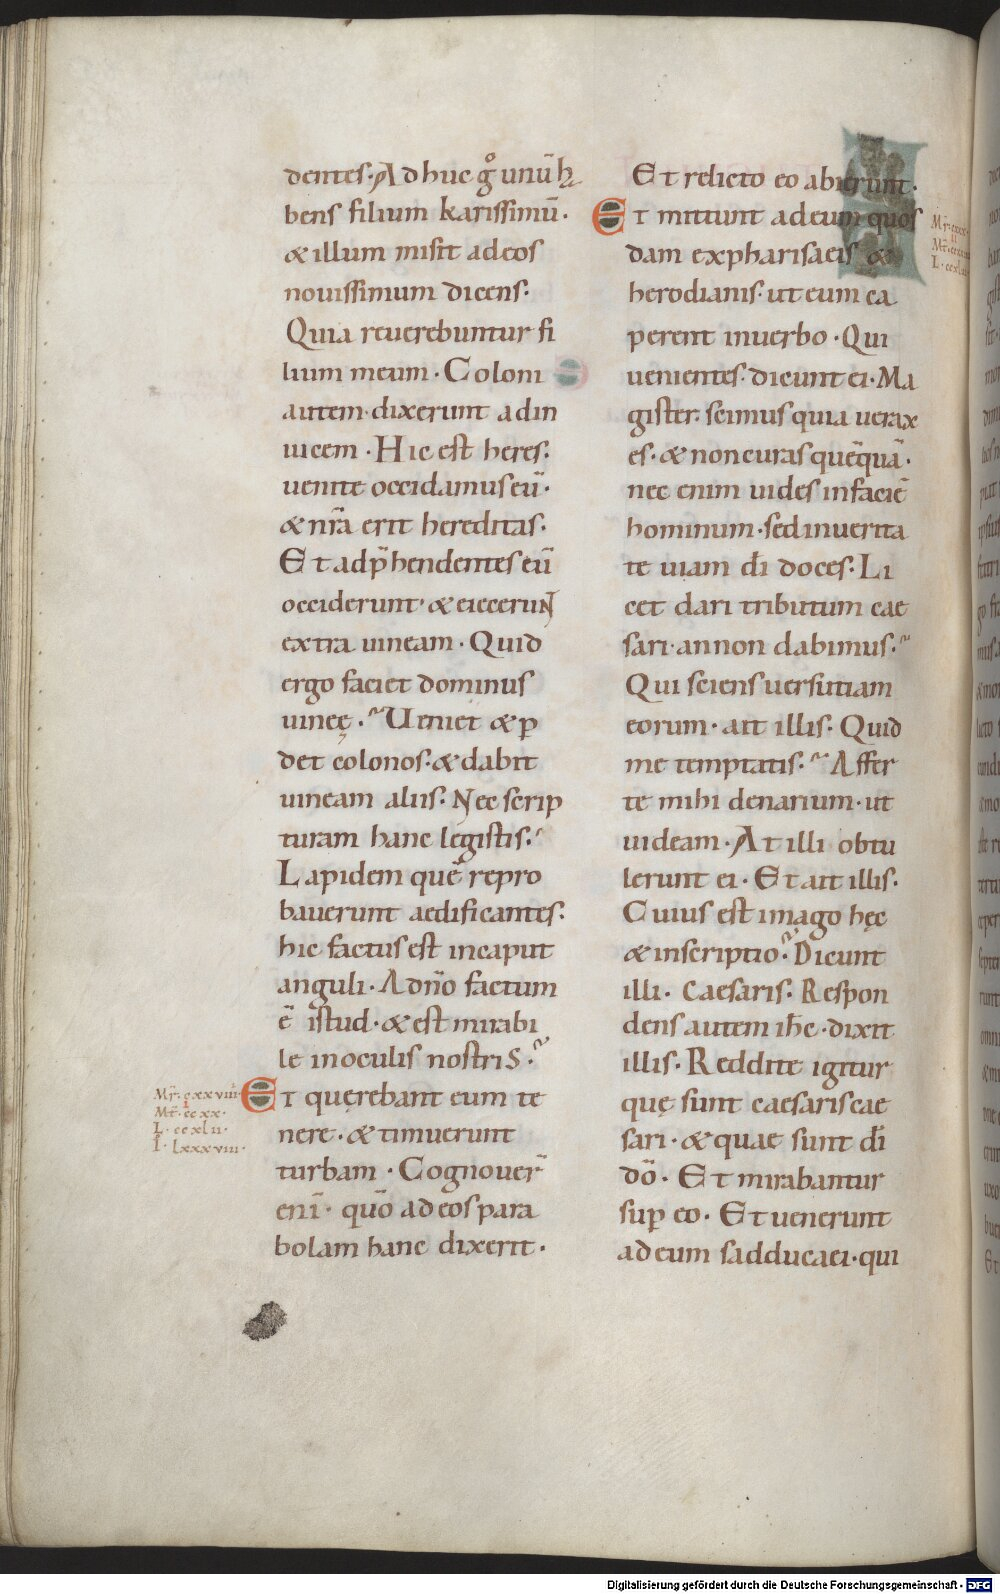 dentes· Adhuc gͦ unū ha
bens filium karissimū·
& illum misit ad eos
nouissimum dicens·
Quia reuerebuntur fi
lium meum· Coloni
autem· dixerunt ad in
uicem· Hic est heres·
uenite occidamus eū·
& nr̄a erit hereditas·
Et adp̄hendentes eū
occiderunt· & eiecerunt
extra uineam· Quid
ergo faciet dominus
uineę· Ueniet & ꝑ
det colonos· & dabit
uineam aliis· Nec scrip
turam hanc legistis·
Lapidem quē repro
bauerunt aedificantes·
hic factus est in caput
anguli· A dn̄o factum
ē istud· & est mirabi
le in oculis nostris·
Mr̄· cxxviii·
Mt̄· ccxx·
L· ccxlii·
I· lxxxviii·
Et querebant eum te
nere· & timuerunt
turbam· Cognouer̄
eni̅· quō ad eos para
bolam hanc dixerit·
Et relicto eo abierunt·
Et mittunt ad eum quos
dam ex pharisaeis &
herodianis· ut eum ca
perent in uerbo· Qui
uenientes· dicunt ei· Ma
gister· scimus quia uerax
es· & non curas quēquā·
nec enim uides in faciē
hominum· sed in uerita
te uiam dī doces· Li
cet dari tributum cae
sari· an non dabimus·
Qui sciens uersutiam
eorum· ait illis· Quid
me temptatis· Affer
te mihi denarium· ut
uideam· At illi obtu
lerunt ei· Et ait illis·
Cuius est imago hęc
& inscriptio· Dicunt
illi· Caesaris· Respon
dens autem ihc̄· dixit
illis· Reddite igitur
quę sunt caesaris cae
sari· & quae sunt dī
dō· Et mirabantur
suꝑ eo· Et uenerunt
ad eum sadducaei· qui
Digitalisierung gefördert durch die Deutsche Forschungsgemeinschaft · DFG